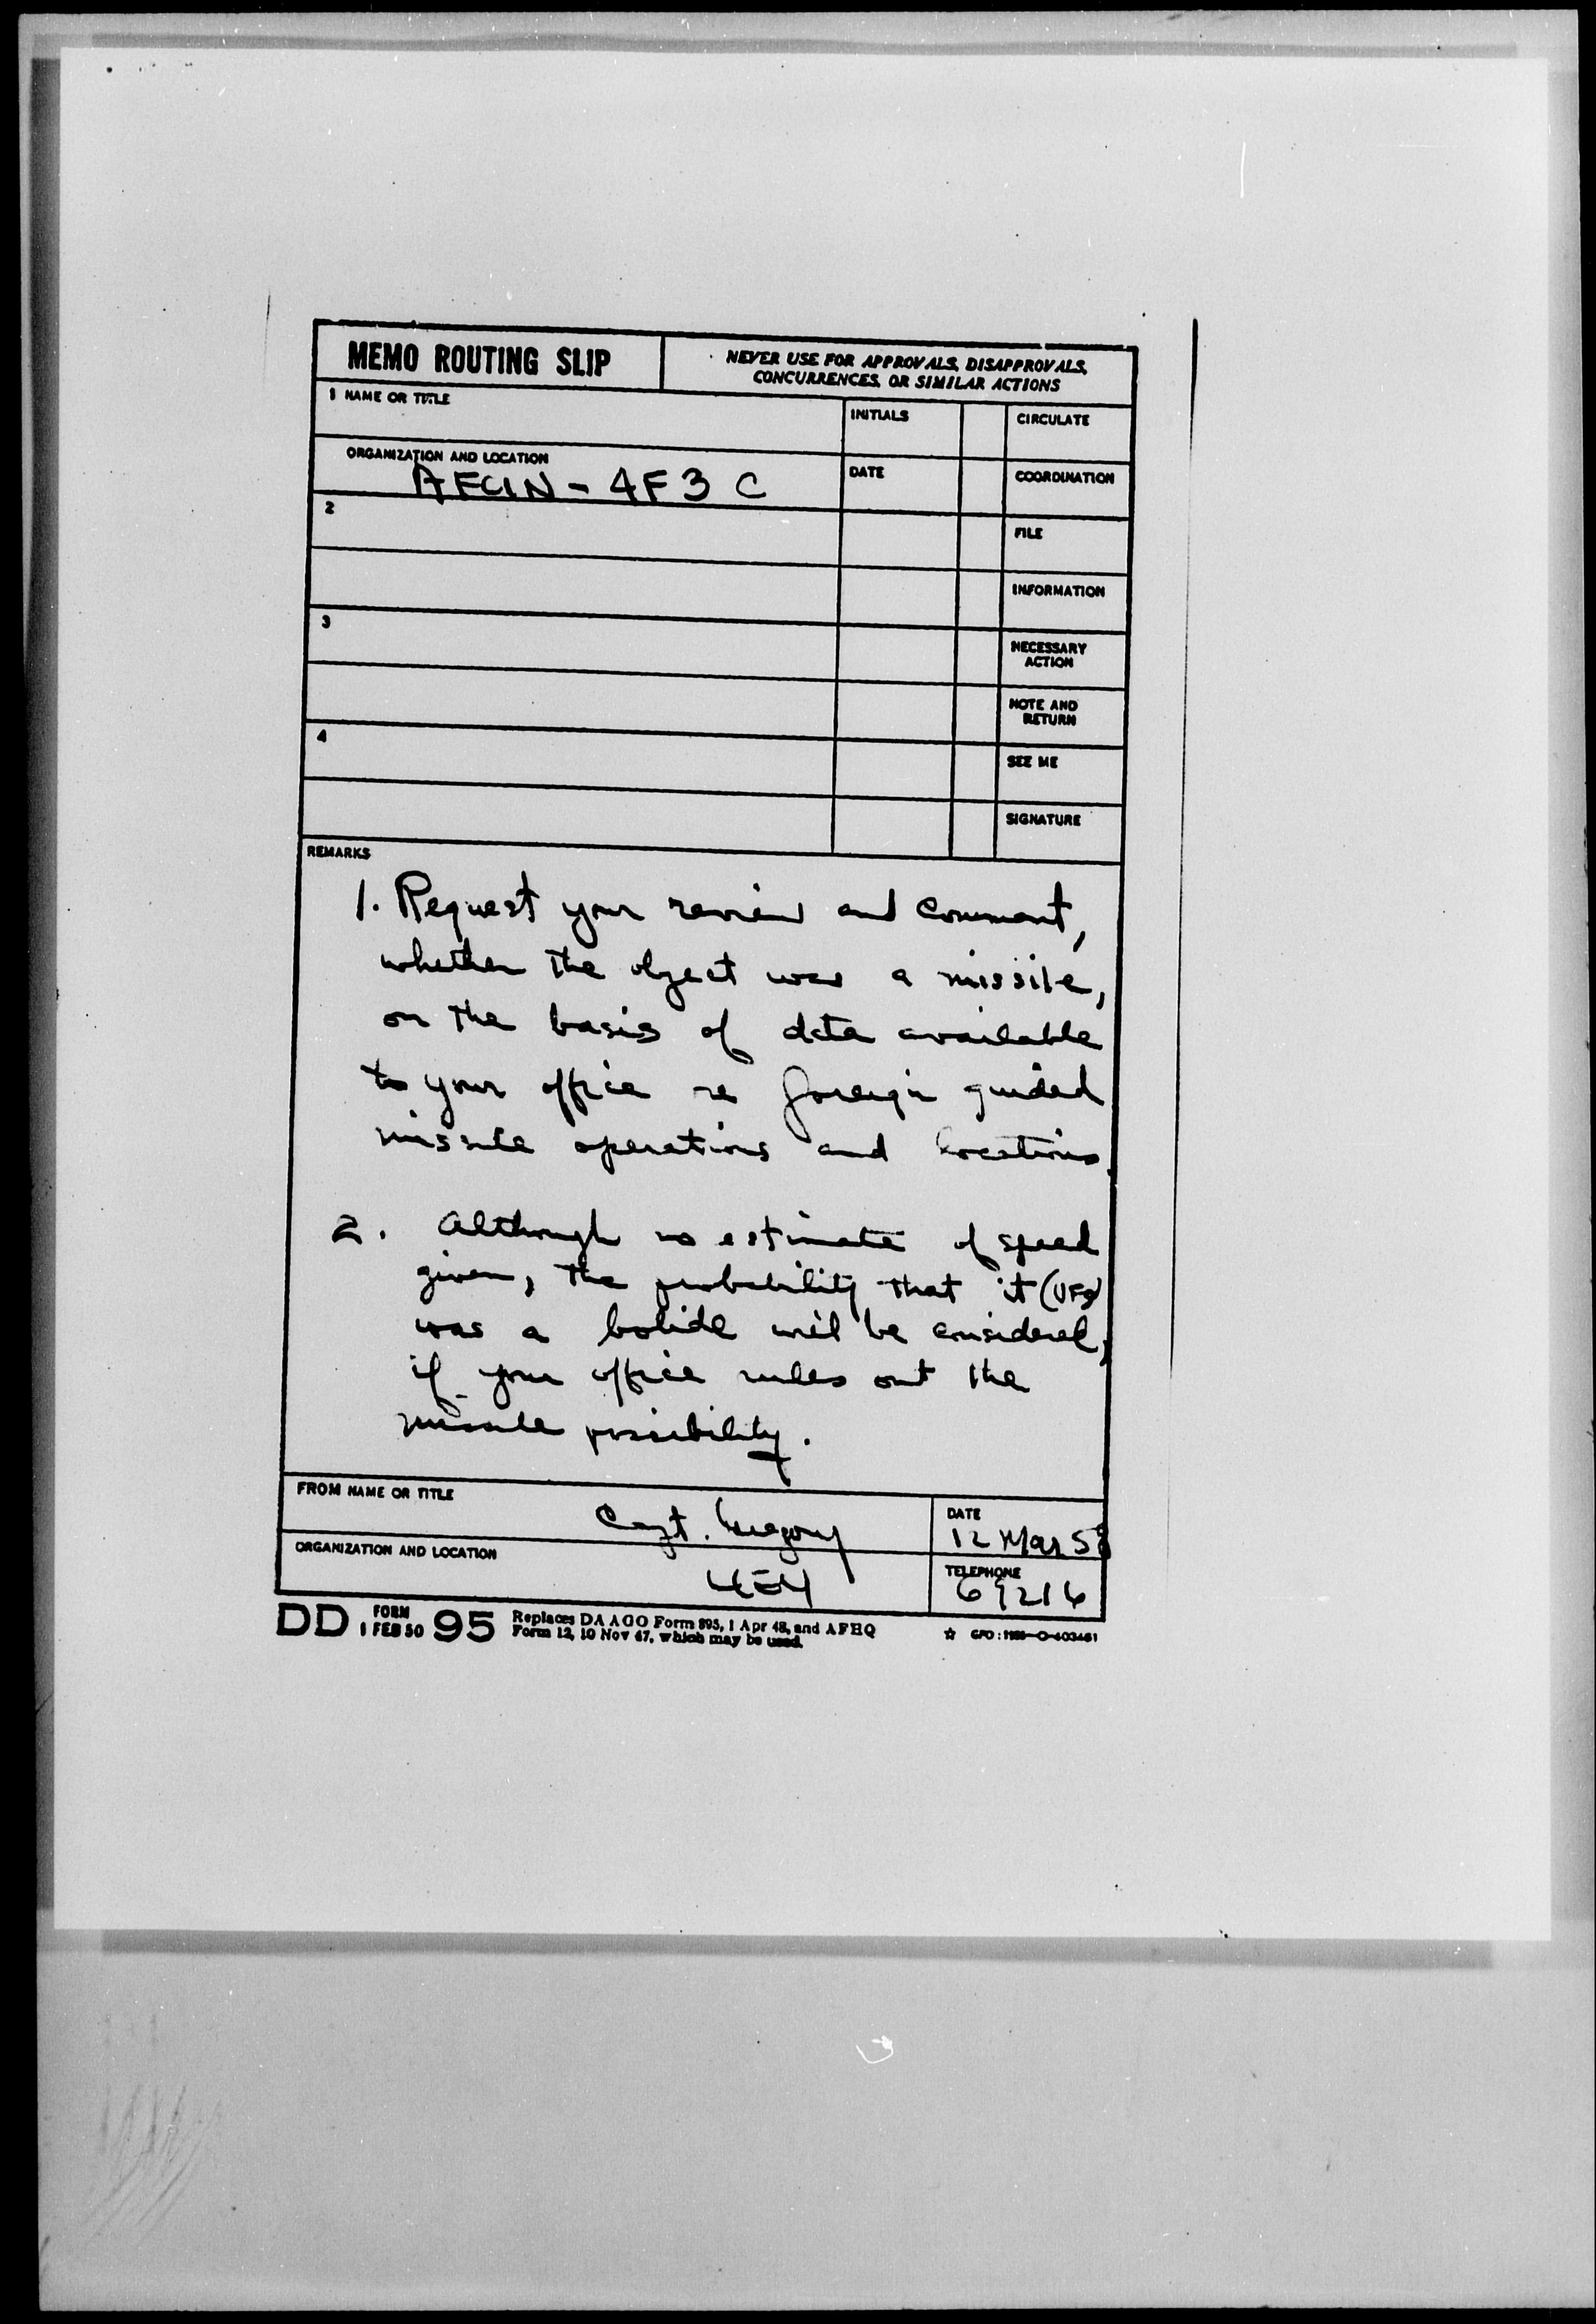 MEMO ROUTING SLIP
NEVER USE FOR APPROVALS, DISAPPROVALS,
CONCURRENCES, OR SIMILAR ACTIONS
1 NAME OR TITLE
INITIALS
CIRCULATE
ORGANIZATION AND LOCATION
AFCIN - 4F3 C
DATE
COORDINATION
2
FILE
INFORMATION
3
NECESSARY
ACTION
NOTE AND
RETURN
4
SEE ME
SIGNATURE
REMARKS
1. Request your review and comment,
whether the object was a missile,
on the basis of data available
to your office re foreign guided
missile operations and locations.
2. Although no estimate of speed
given, the probability that it (UFO)
was a bolide will be considered,
if your office rules out the
missile possibility.
FROM NAME OR TITLE
Capt. Gregory
DATE
12 Mar 58
ORGANIZATION AND LOCATION
4E4
TELEPHONE
69216
DD FORM 1 FEB 50 95
Replaces DA AGO Form 895, 1 Apr 48, and AFHQ
Form 12, 10 Nov 47, which may be used.
☆ GPO: